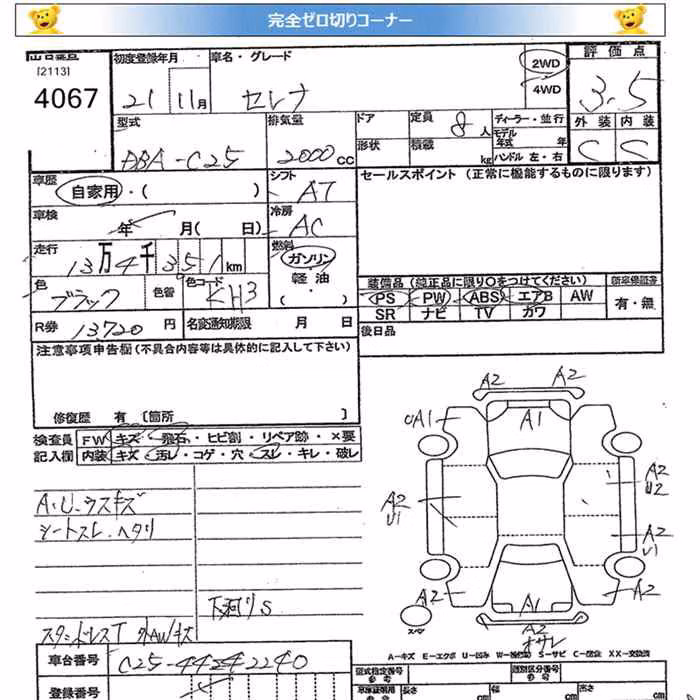 完全ゼロ切りコーナー
[2113]
4067
初度登録年月
21 11月
車名・グレード
セレナ
2WD
4WD
評価点
3.5
外装 内装
C C
型式
DBA-C25
排気量
2000cc
ドア
形状
定員 8人
積載 kg
ディーラー・並行
モデル年式 年
ハンドル 左・右
車歴
自家用・( )
シフト
AT
セールスポイント (正常に機能するものに限ります)
車検
年 月( 日)
冷房
AC
走行
13万4千351km
燃料
ガソリン
軽油
( ・ )
色
ブラック
色替
色コード
KH3
装備品 (純正品に限り○をつけてください)
PS PW ABS エアB AW
SR ナビ TV カワ
新車保証書
有・無
R券 13720円
名変通知期限 月 日
後日品
注意事項申告欄 (不具合内容等は具体的に記入して下さい)
修復歴 有 [箇所 ]
検査員記入欄
FW キズ・飛石・ヒビ割・リペア跡・×要
内装 キズ・汚レ・コゲ・穴・スレ・キレ・破レ
A.U.ウスキズ
シートスレ.ヘタリ
下廻りS
スタッドレスT 外AWキズ
A2 A2
UA1 A1
A2 U1
A2 U2
A2 U1
A2 A1 A2
A2
スペア
A-キズ E-エクボ U-凹み W-補修跡 S-サビ C-腐蝕 XX-交換済
車台番号
C25-44242240
登録番号
型式指定番号 参考
類別区分番号 参考
車庫証明用 参考
長さ cm 幅 cm 高さ cm